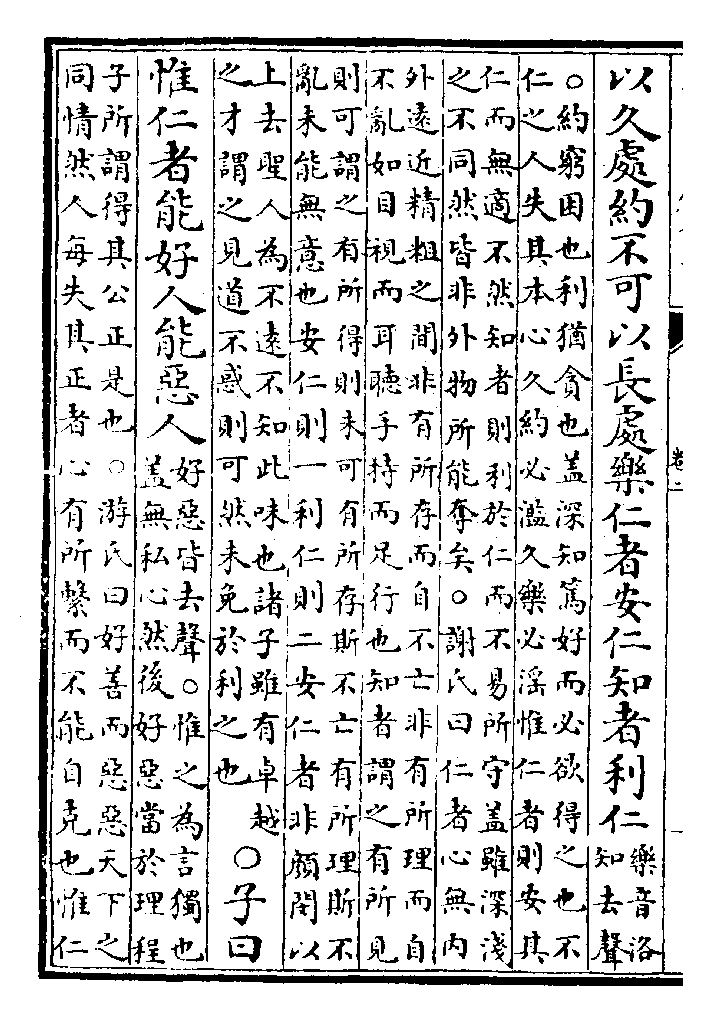 以久處約不可以長處樂仁者安仁知者利仁樂音洛
知去聲
○約窮困也利猶貪也盖深知篤好而必欲得之也不
仁之人失其本心久約必濫久樂必淫惟仁者則安其
仁而無適不然知者則利於仁而不易所守盖雖深淺
之不同然皆非外物所能奪矣○謝氏曰仁者心無内
外逺近精粗之間非有所存而自不亡非有所理而自
不亂如目視而耳聽手持而足行也知者謂之有所見
則可謂之有所得則未可有所存斯不亡有所理斯不
亂未能無意也安仁則一利仁則二安仁者非顔閔以
上去聖人為不逺不知此味也諸子雖有卓越
之才謂之見道不惑則可然未免於利之也
○子曰
惟仁者能好人能惡人好惡皆去聲○惟之為言獨也
盖無私心然後好惡當於理程
子所謂得其公正是也○游氏曰好善而惡惡天下之
同情然人每失其正者心有所繫而不能自克也惟仁